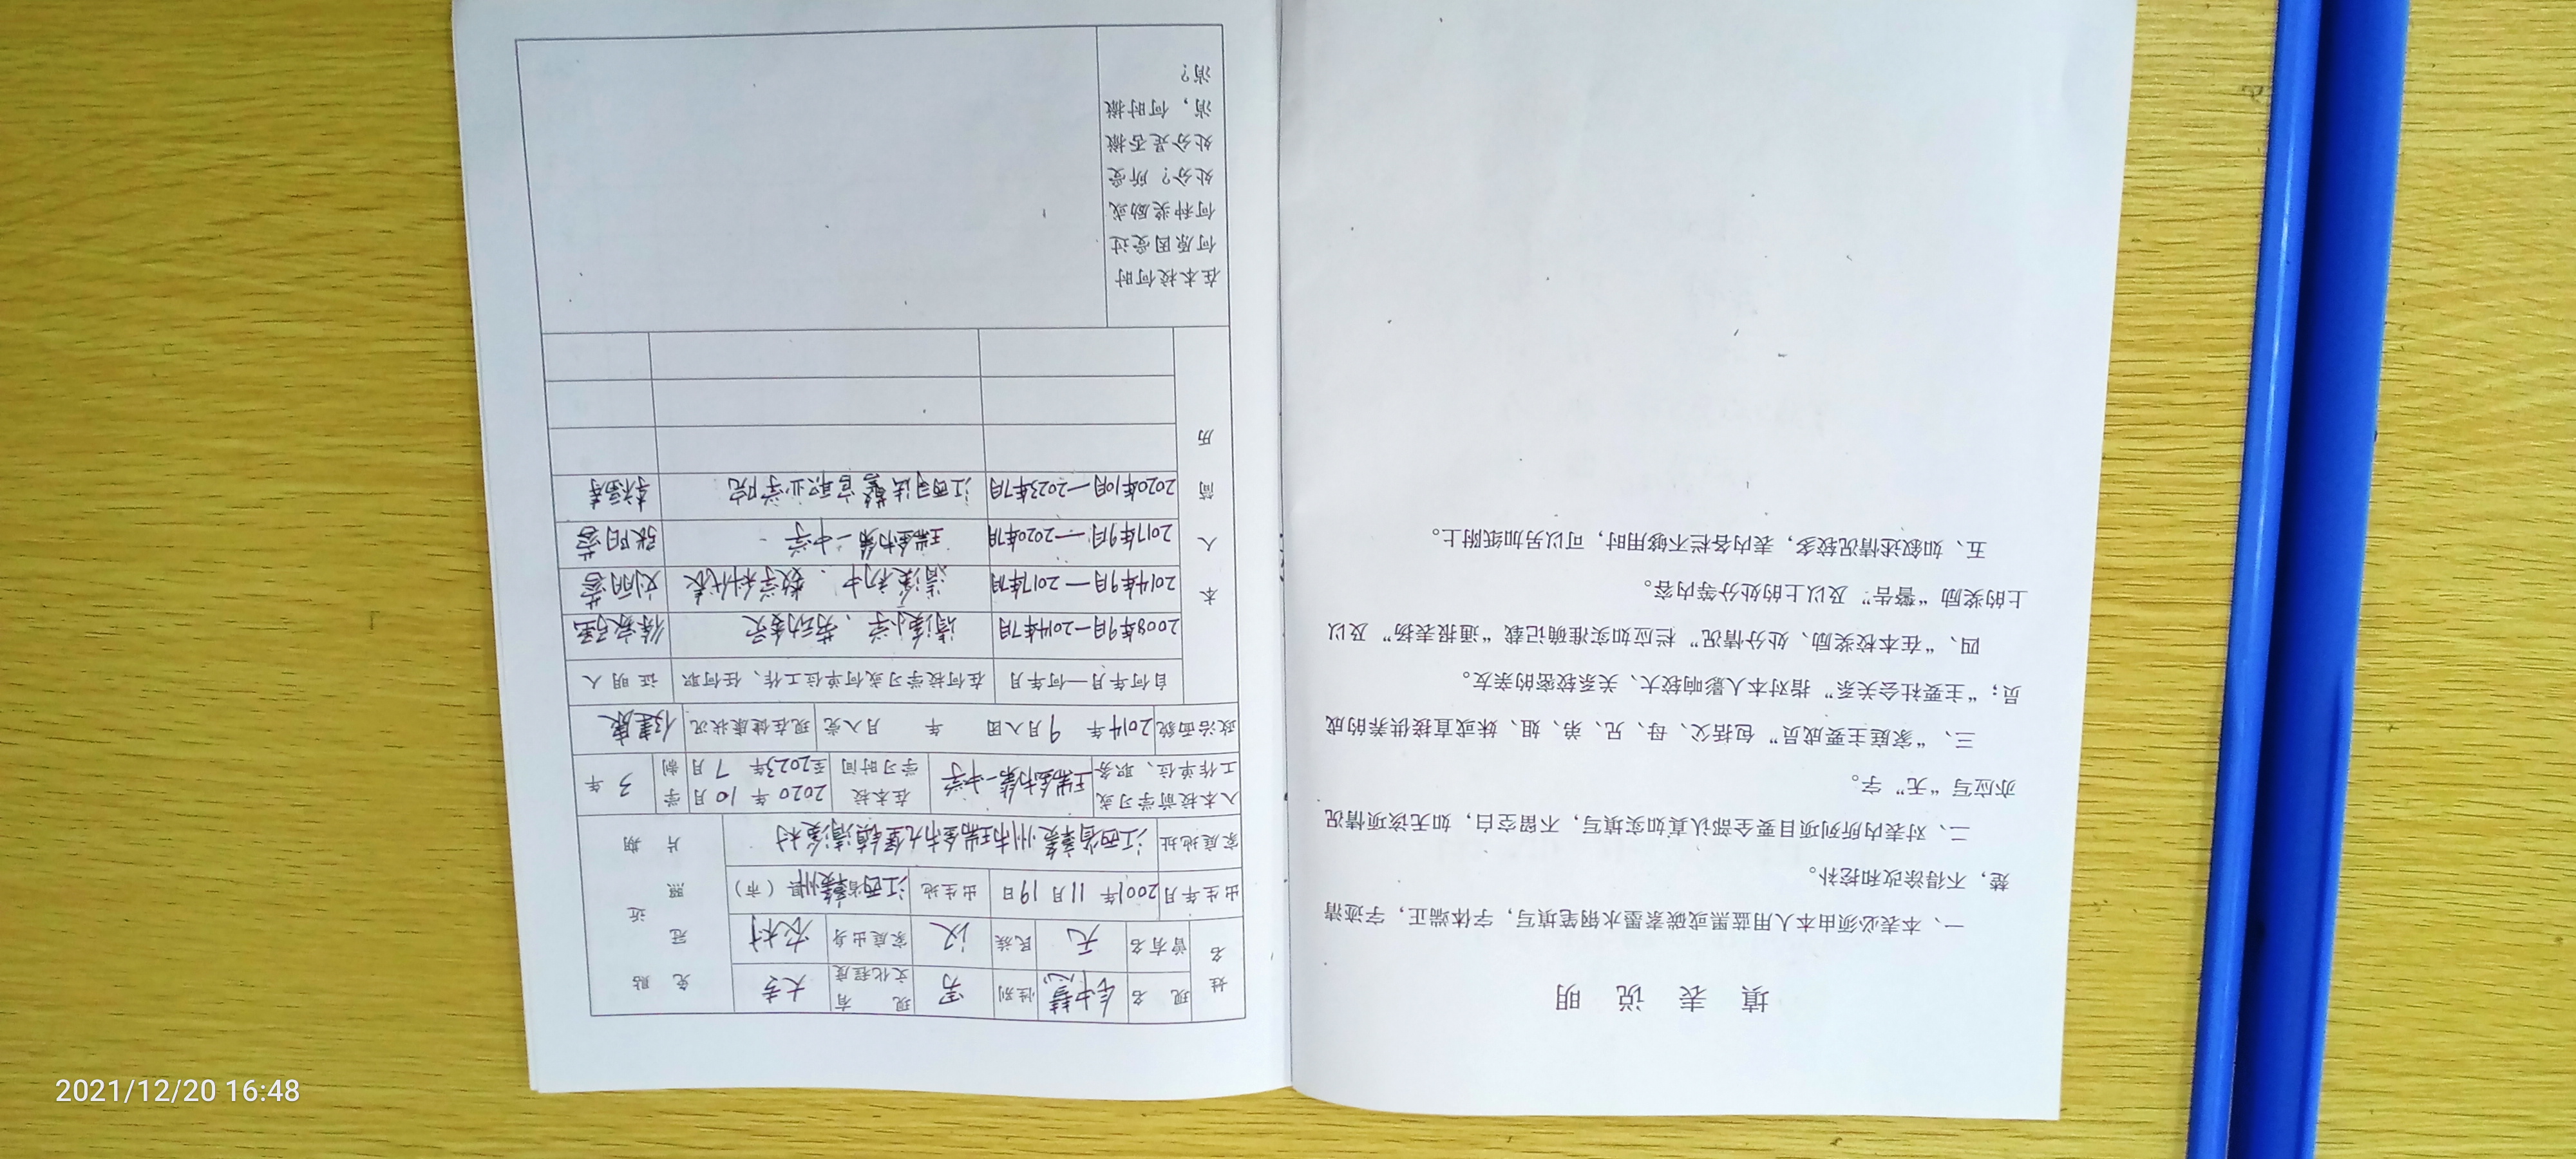 2021/12/20 16:48
填 表 说 明
一、本表必须由本人用蓝黑或碳素墨水钢笔填写，字体端正，字迹清
楚，不得涂改和挖补。
二、对表内所列项目要全部认真如实填写，不留空白，如无该项情况
亦应写“无”字。
三、“家庭主要成员”包括父、母、兄、弟、姐、妹或直接供养的成
员；“主要社会关系”指对本人影响较大、关系较密的亲友。
四、“在本校奖励、处分情况”栏应如实准确记载“通报表扬”及以
上的奖励“警告”及以上的处分等内容。
五、如叙述情况较多，表内各栏不够用时，可以另加纸附上。
姓名 现名 钟慧 性别 男 现有文化程度 大专
曾有名 无 民族 汉 家庭出身 农村
免冠照片 贴近期
出生年月 2001年 11月 19日 出生地 江西省赣州县（市）
家庭地址 江西省赣州市瑞金市九堡镇清溪村
入本校前学习或工作单位、职务 瑞金市第一中学 在本校学习时间 2020年 10月至2023年 7月 学制 3年
政治面貌 2014年 9月入团 年 月入党 现在健康状况 健康
本人简历
自何年月—何年月 在何校学习或何单位工作、任何职 证明人
2008年9月—2014年7月 清溪小学、劳动委员 徐家强
2014年9月—2017年7月 清溪初中、数学科代表 刘丽蓉
2017年9月—2020年7月 瑞金市第一中学 张阳蓉
2020年10月—2023年7月 江西司法警官职业学院 李福寿
在本校何时
何原因受过
何种奖励或
处分？所受
处分是否撤
消，何时撤
消？